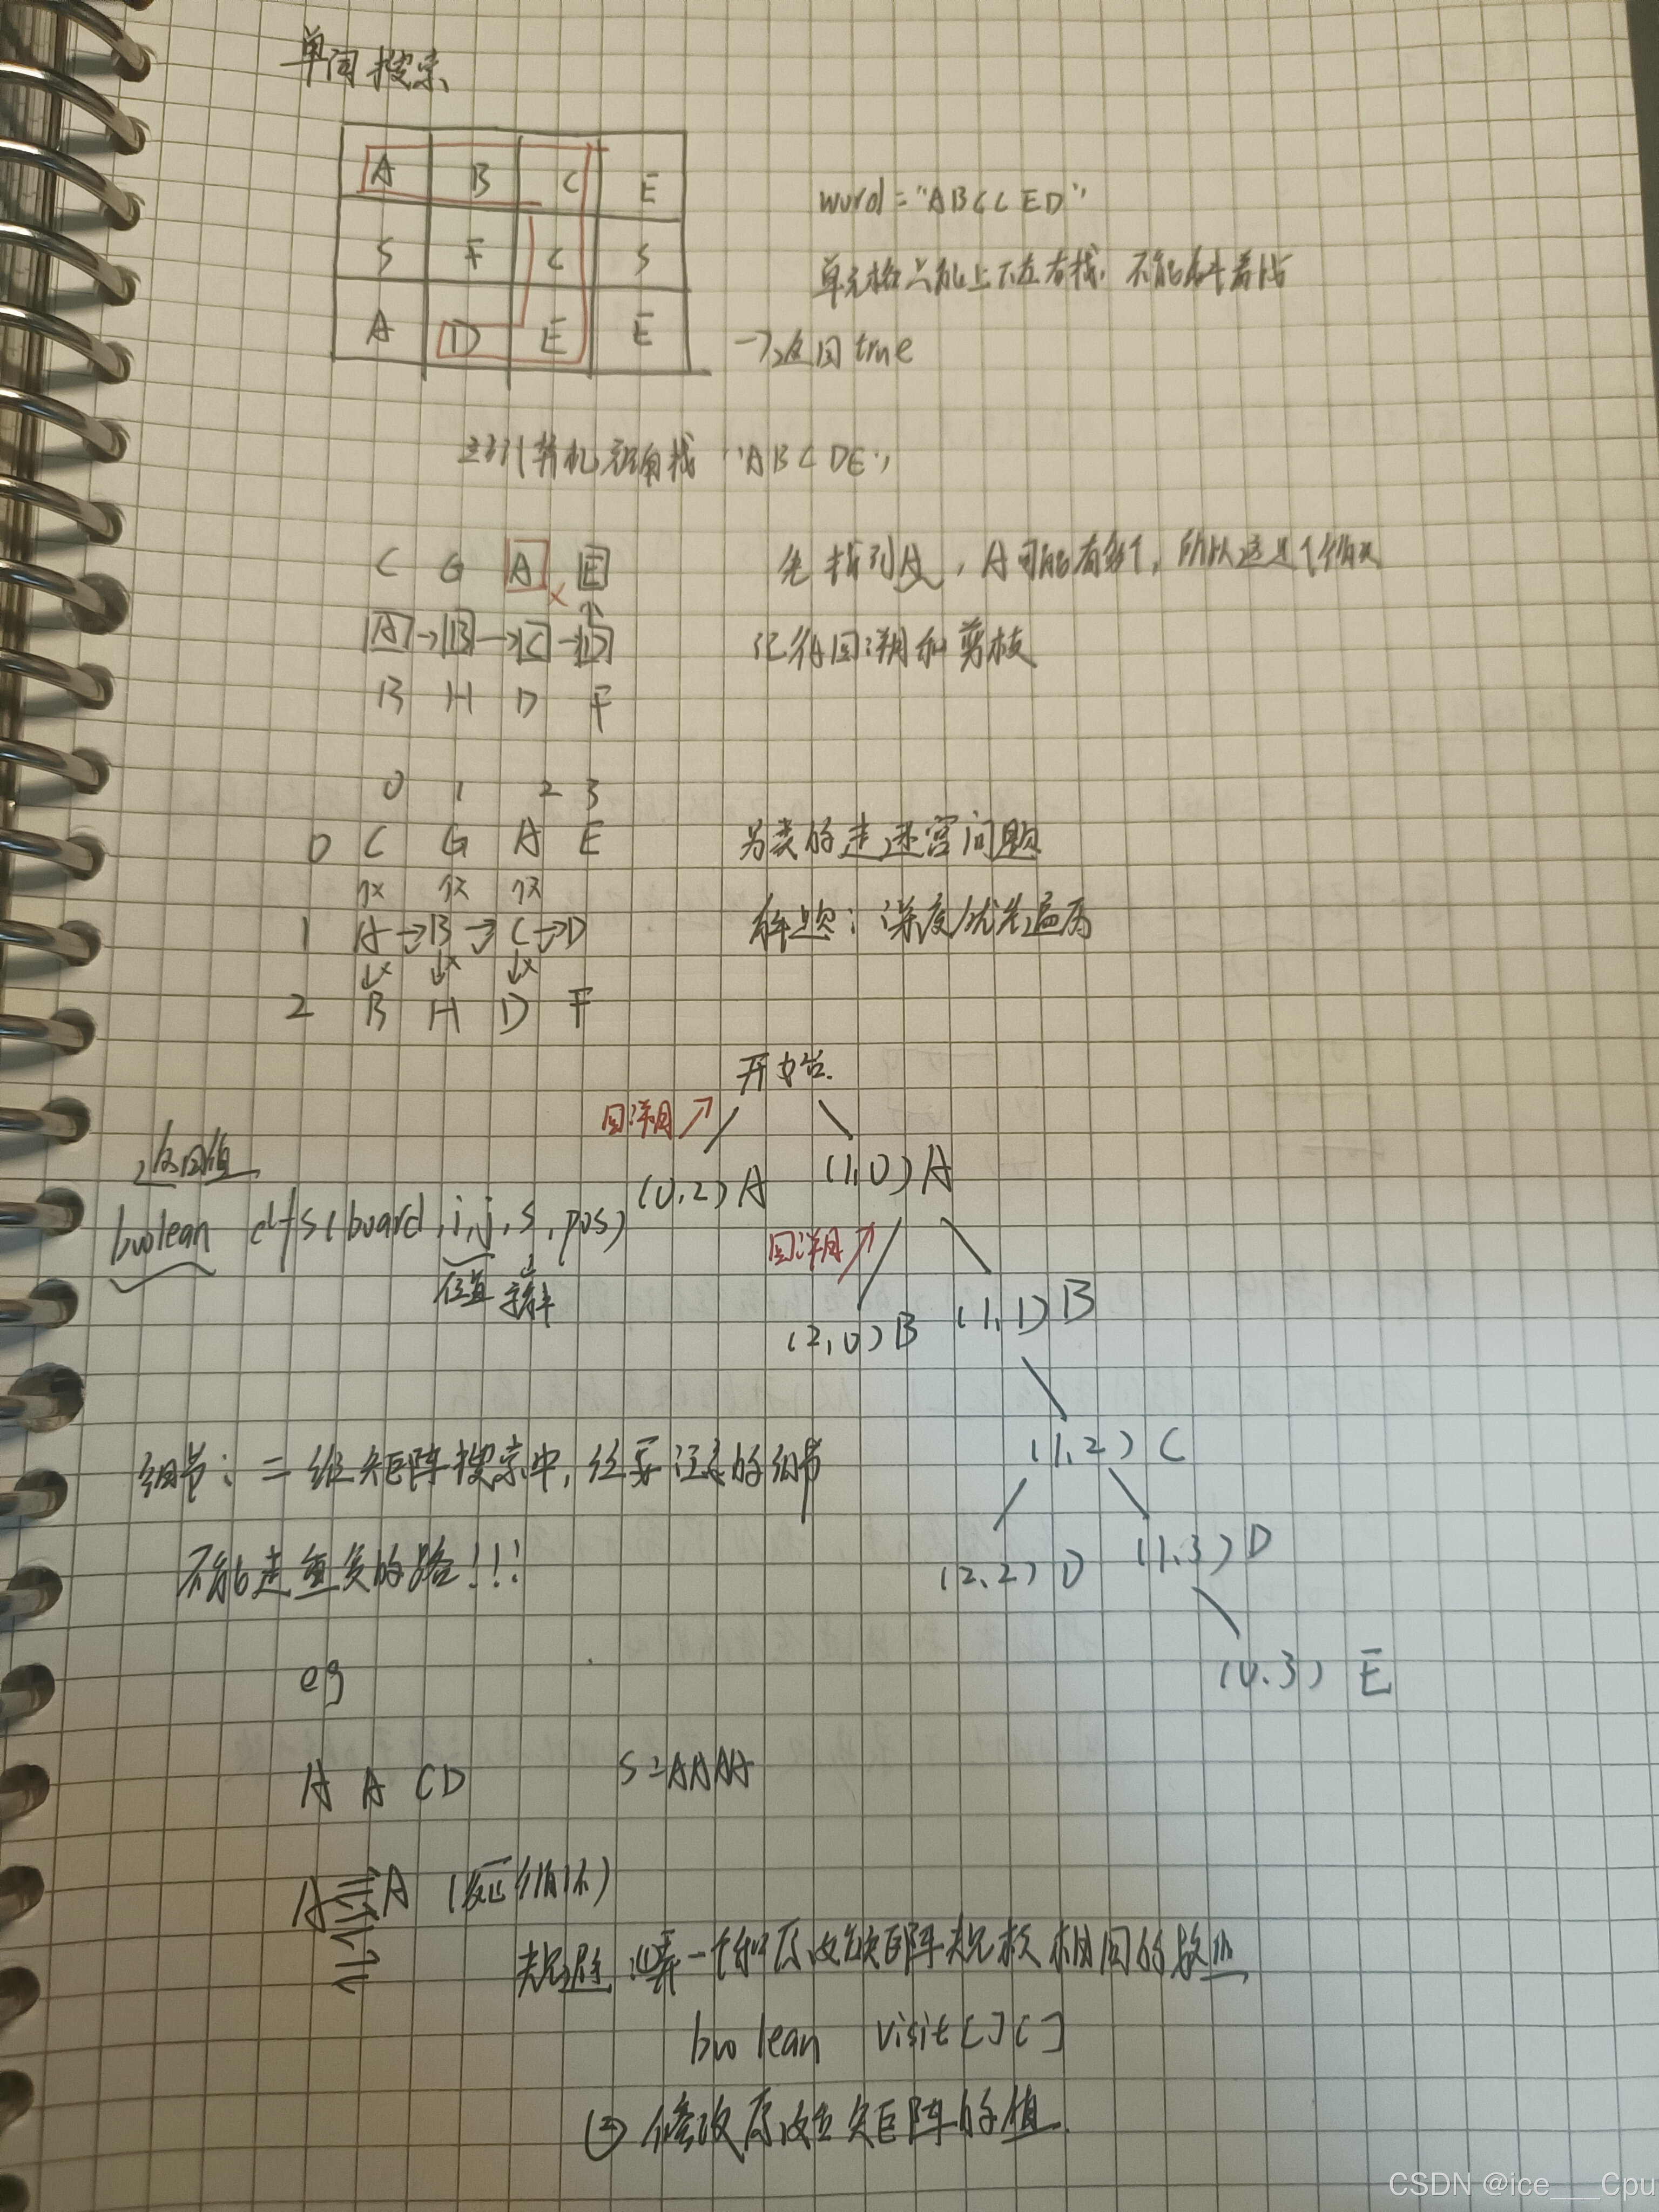 单词搜索
A B C E
word="ABCCED"
S F C S
单元格只能上下左右找,不能斜着找
A D E E
→返回true
找 "ABCDE",
C G A E
先找到A,A可能有多个,所以这是个循环
A→B→C→D
记得回溯和剪枝
B H D F
0 1 2 3
0 C G A E
另类的走迷宫问题
↑x ↑x ↑x
1 A→B→C→D
解题:深度优先遍历
↓x ↓x ↓x
2 B H D F
开始
回溯
返回值
(0,2)A (1,0)A
boolean dfs(board,i,j,s,pos)
回溯
位置
(2,0)B (1,1)B
(1,2)C
细节:二维矩阵搜索中,经要注意的细节
不能走重复的路!!!
(2,2)D (1,3)D
eg
(0,3) E
A A C D
S=AAAA
A A (死循环)
规避 ①弄一个和原始矩阵规模相同的数组
boolean visit[][]
② 修改原始矩阵的值
CSDN @ice___Cpu